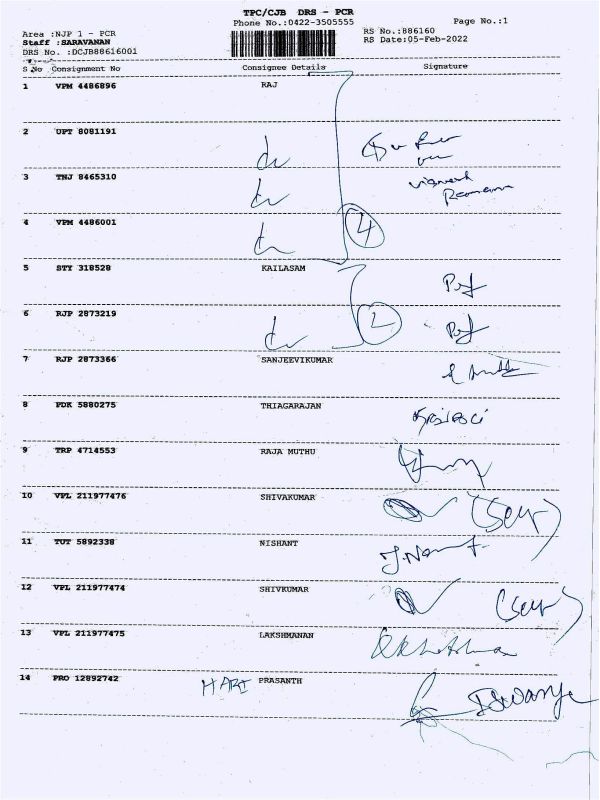 TPC/CJB DRS - PCR
Phone No.:0422-3505555
Page No.:1
Area :NJP 1 - PCR
RS No.:886160
Staff :SARAVANAN
RS Date:05-Feb-2022
DRS No. :DCJB88616001
S No Consignment No Consignee Details Signature
1 VPM 4486896 RAJ
2 UPT 8081191
3 TNJ 8465310
4 VPM 4486001
4
5 STY 318528 KAILASAM
6 RJP 2873219
7 RJP 2873366 SANJEEVIKUMAR
8 PDK 5880275 THIAGARAJAN
9 TRP 4714553 RAJA MUTHU
10 VPL 211977476 SHIVAKUMAR
11 TUT 5892338 NISHANT
12 VPL 211977474 SHIVKUMAR
13 VPL 211977475 LAKSHMANAN
14 PRO 12892742 HARI PRASANTH